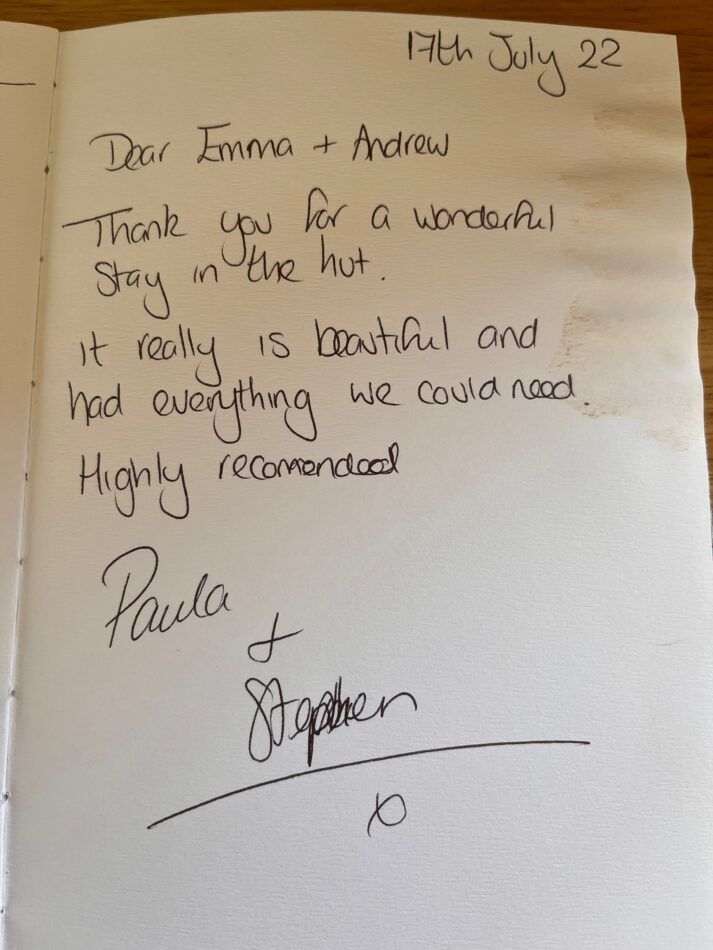 17th July 22
Dear Emma + Andrew
Thank you for a wonderful
stay in the hut.
it really is beautiful and
had everything we could need.
Highly recomended
Paula
+
Stephen
x